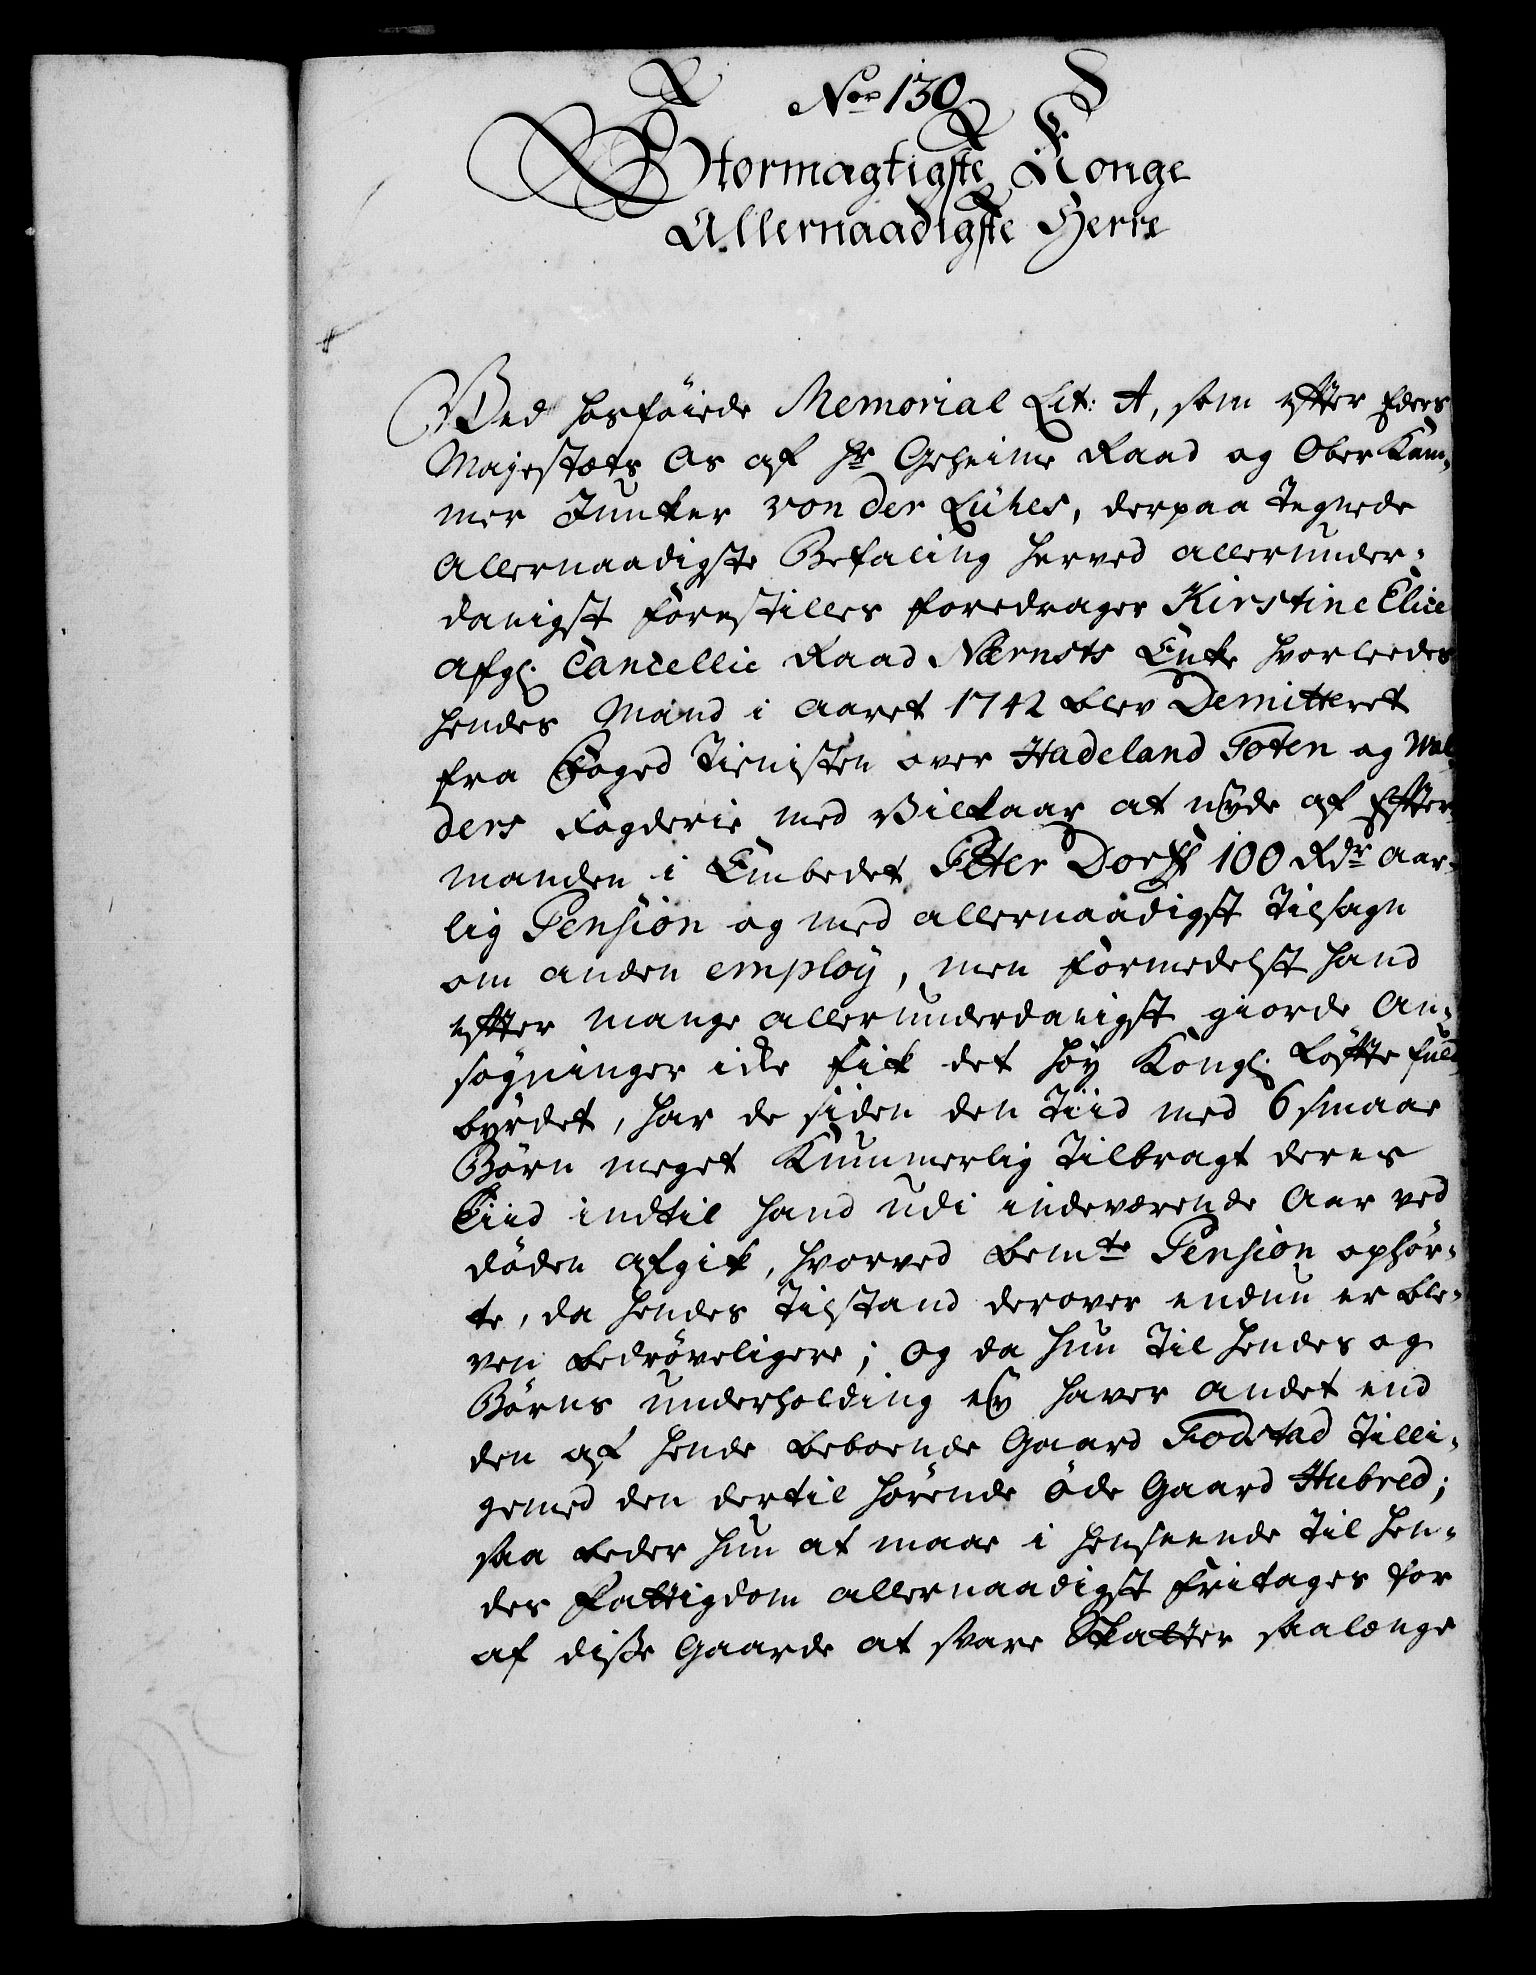 No: 130
Stormagtigste Konge
Allernaadigste Herre
Ved hosföiede Memorial Lit: A, som efter Eders
Majestæts Os af Hr Geheime Raad og Ober Kam-
mer Junker von der Lühes, derpaa tegnede
allernaadigste Befaling herved allerunder-
danigst forestilles foredrager Kirstine Elice
afg: Cancellie Raad Nærnsts Enke hvorledes
hendes Mand i aaret 1742 blev Demitteret
fra Foged Tienisten over Hadeland Toten og Wal-
ders Fogderie med Vilkaar at nyde af Efter-
manden i Embedet Peter Dorff 100 Rdr aar-
lig Pension og med allernaadigst Tilsagn
om anden employ, men formedelst hand
efter mange allerunderdanigst giorde An-
søgninger icke fik det høy Kongl: Løfte ful-
byrdet, har de siden den Tiid med 6 smaae
Börn meget Kummerlig tilbragt deres
Tiid indtil hand udi indeværende Aar ved
döden afgik, hvorved bemte Pension ophør-
te, da hendes Tilstand derover endnu er ble-
ven bedröveligere; Og da hun til hendes og
Börns underholding ey haver andet end
den af hende beboende Gaard Fodstad tilli-
gemed den dertil hörende öde Gaard Hubred;
saa beder hun at maae i henseende til hen-
des Fattigdom allernaadigst fritages for
af disse Gaarde at svare Skatter saalænge